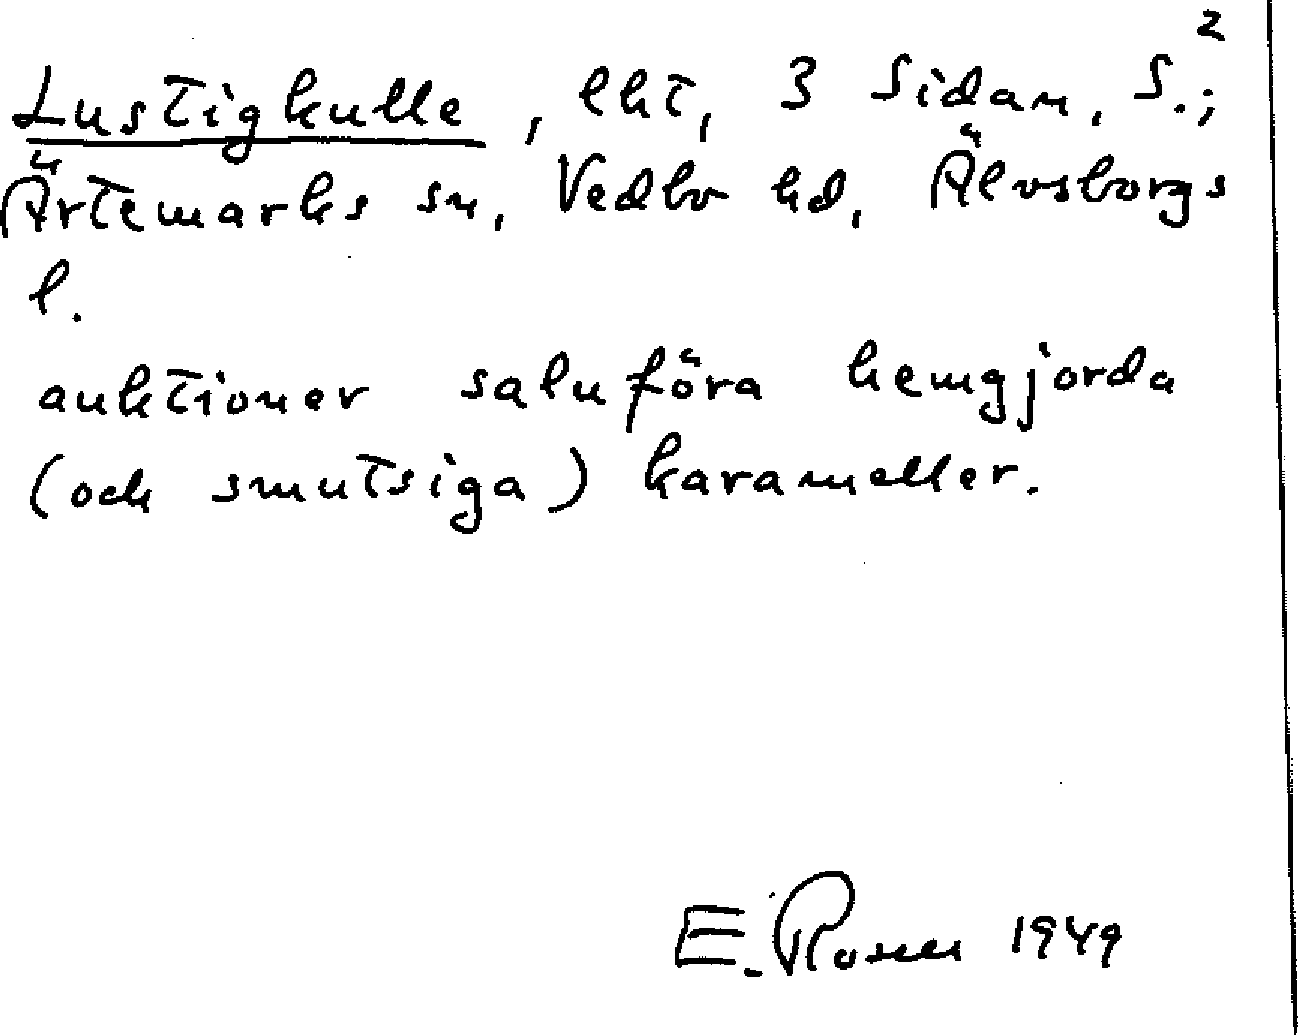 2
Lustigkulle, lht, 3 Sidan, S.;
Ärtemarks sn, Vedbo hd, Älvsborgs
l.
auktioner saluföra hemgjorda
(och smutsiga) karameller.
E. Rosen 1949